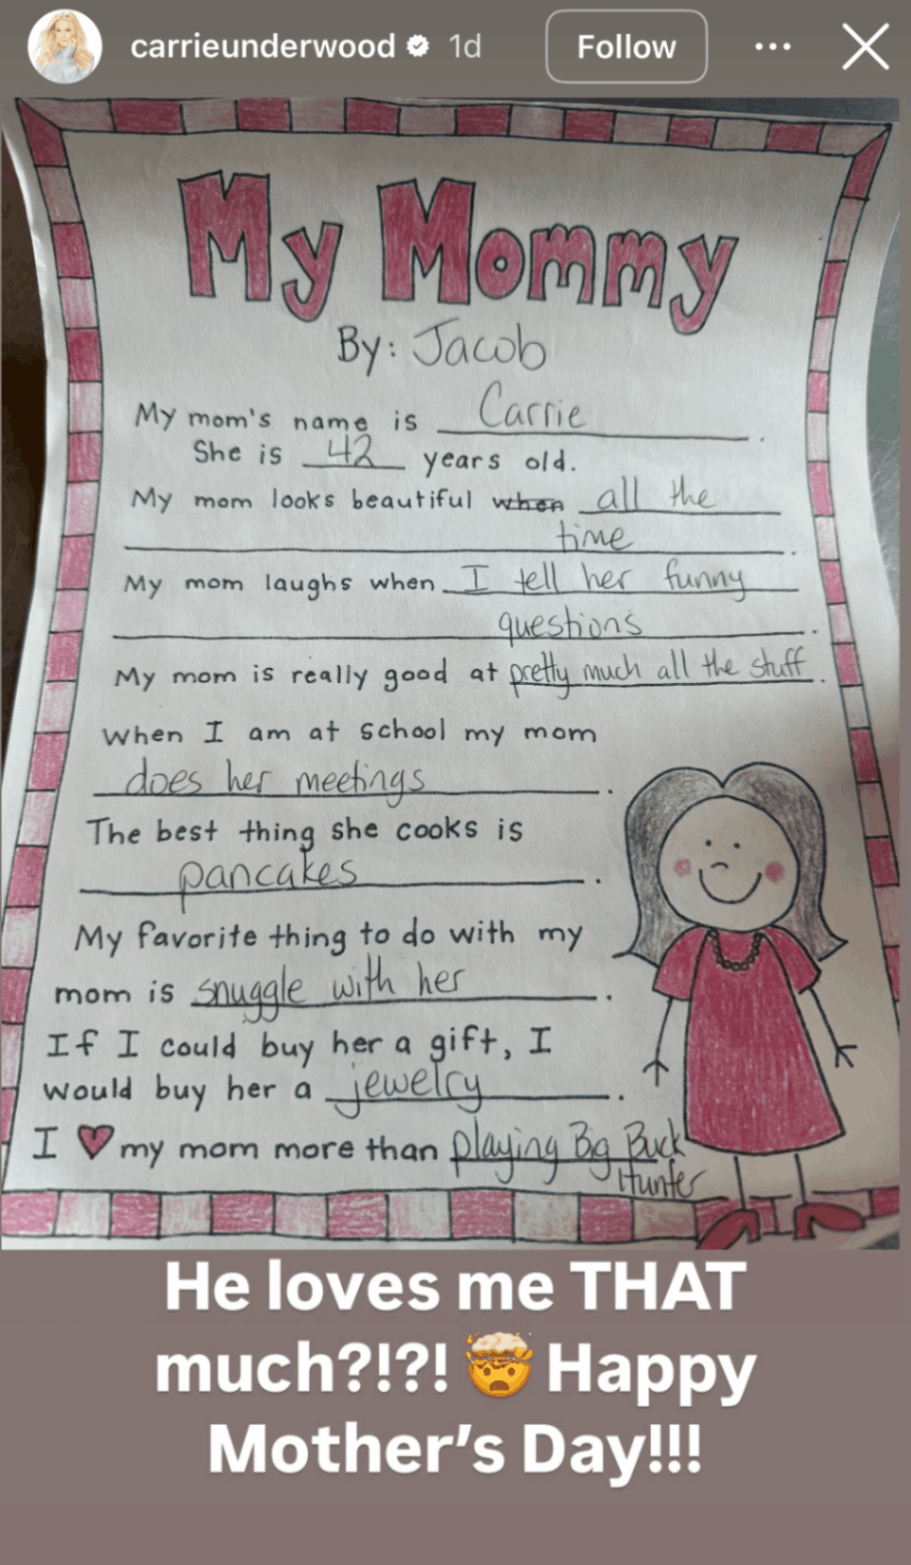 carrieunderwood 1d Follow
My Mommy
By: Jacob
My mom's name is Carrie.
She is 42 years old.
My mom looks beautiful when all the
time.
My mom laughs when I tell her funny
questions.
My mom is really good at pretty much all the stuff.
When I am at school my mom
does her meetings.
The best thing she cooks is
pancakes.
My favorite thing to do with my
mom is snuggle with her.
If I could buy her a gift, I
would buy her a jewelry.
I ♥ my mom more than playing Big Buck
Hunter
He loves me THAT
much?!?! 🤯 Happy
Mother's Day!!!